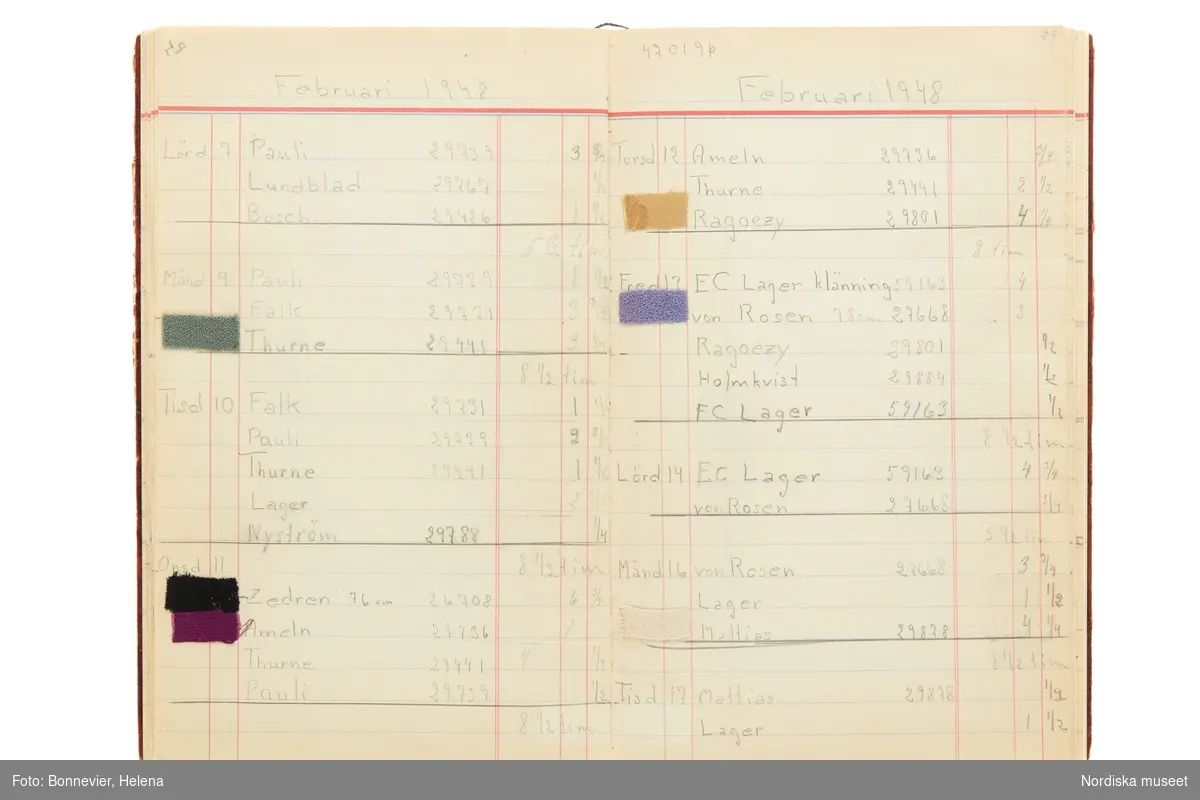 Februari 1948
Lörd 7 Pauli 29739 3
Lundblad 29767
Bosch 29426 1
5 1/2 tim
Månd 9 Pauli 29739 1
Falk 29731 3
Thurne 29441 3
8 1/2 tim
Tisd 10 Falk 29731 1
Pauli 29739 2
Thurne 29441 1
Lager 2
Nyström 29788 1/4
8 1/2 tim
Onsd 11
Zedren 76 cm 26708 6
Ameln 29736 1
Thurne 29441
Pauli 29739 1/2
8 1/2 tim
470196
29
Februari 1948
Torsd 12 Ameln 29736 3/4
Thurne 29441 2 1/2
Ragoezy 29801 4
8 tim
Fred 13 EC Lager klänning 59163 4
von Rosen 78 cm 27668 3
Ragoezy 29801 1/2
Holmkvist 29884 1/2
EC Lager 59163 1/2
8 1/2 tim
Lörd 14 EC Lager 59163 4 3/4
von Rosen 27668 3/4
5 1/2 tim
Månd 16 von Rosen 27668 3
Lager 1 1/2
Mattias 29878 4 1/4
8 1/2 tim
Tisd 17 Mattias 29878 1/2
Lager 1 1/2
Foto: Bonnevier, Helena
Nordiska museet